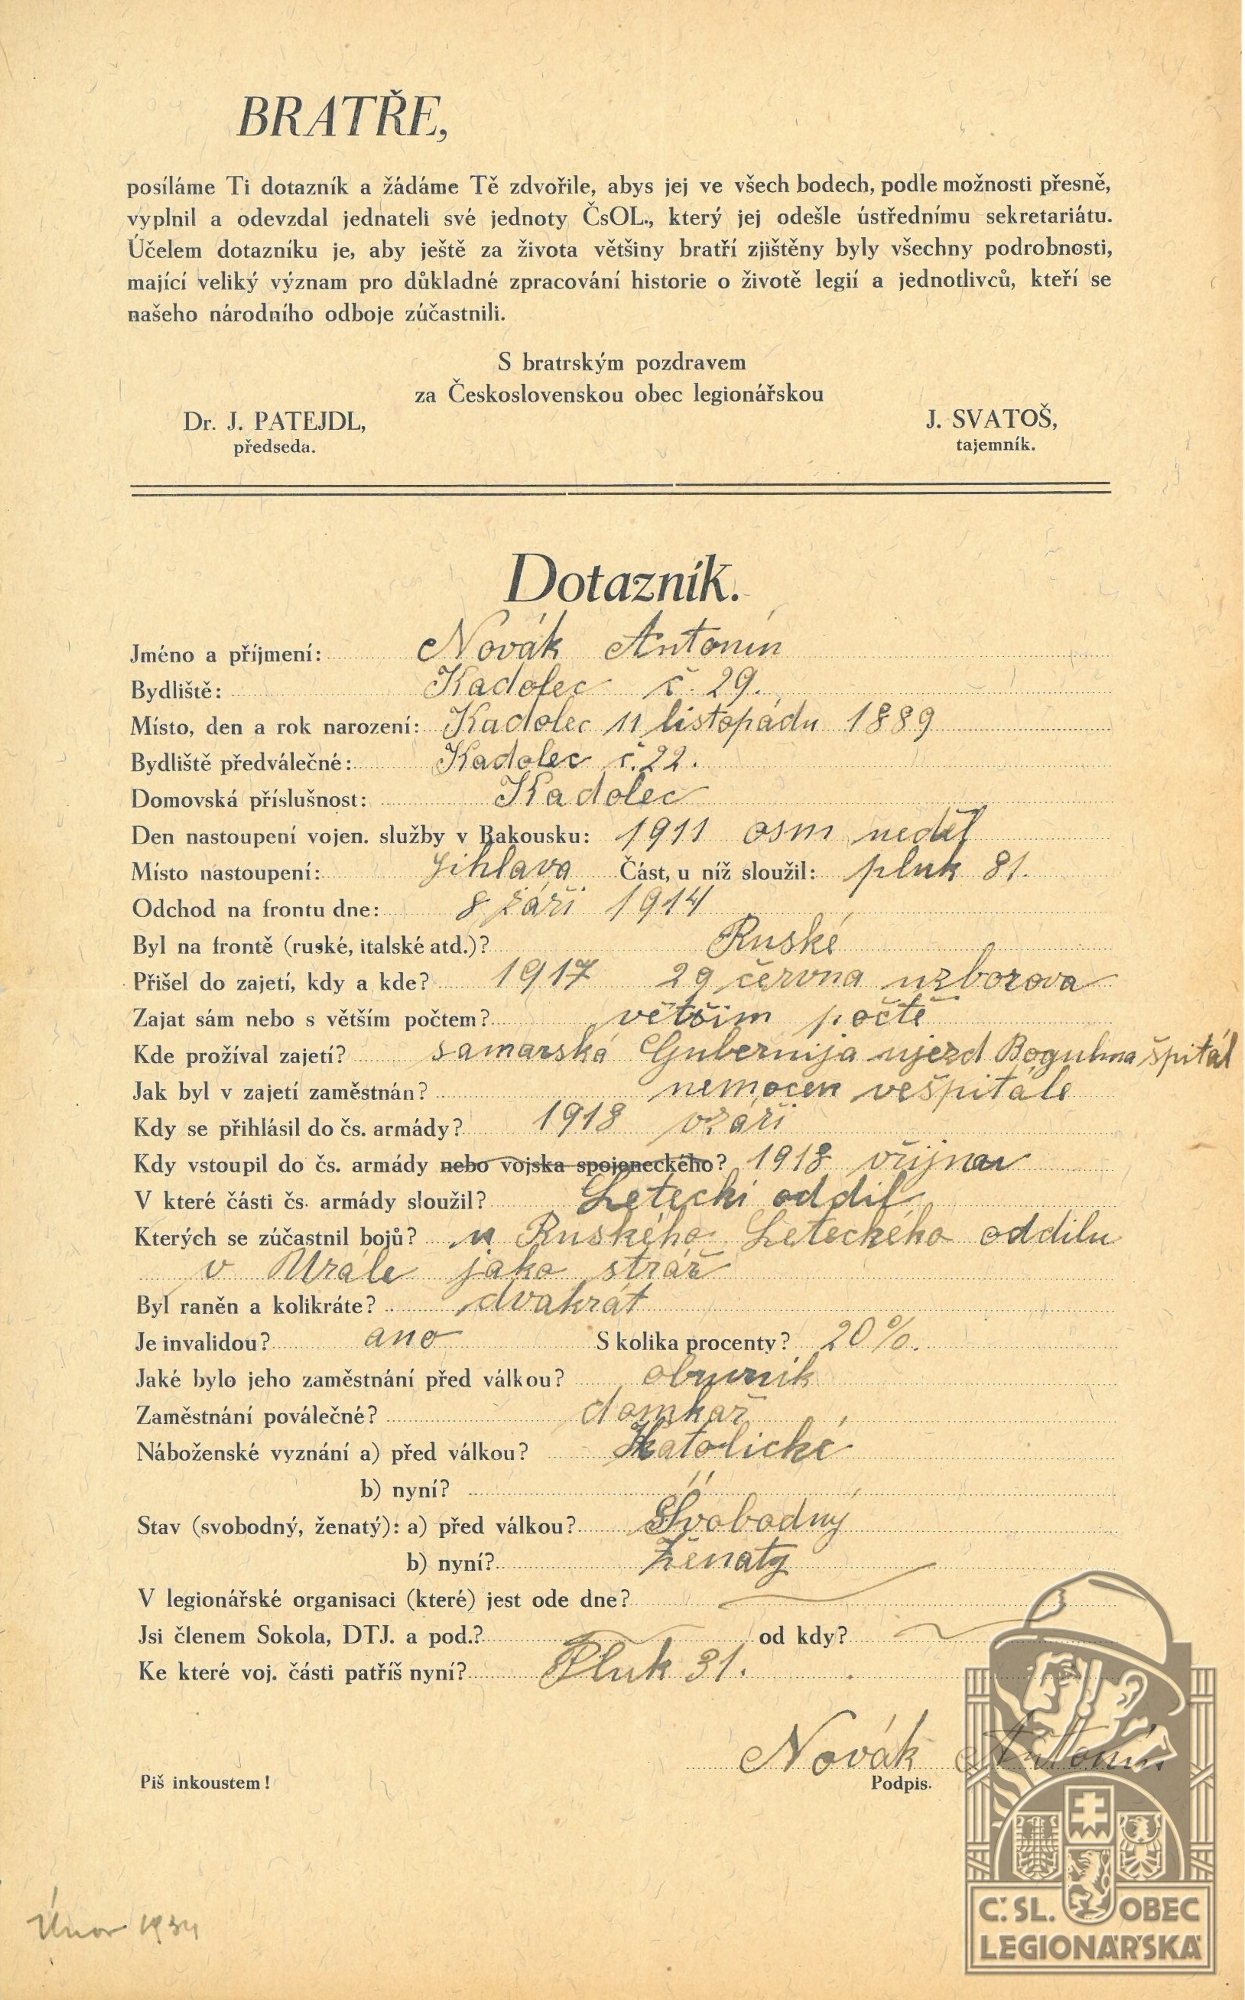 BRATŘE,
posíláme Ti dotazník a žádáme Tě zdvořile, abys jej ve všech bodech, podle možnosti přesně,
vyplnil a odevzdal jednateli své jednoty ČsOL., který jej odešle ústřednímu sekretariátu.
Účelem dotazníku je, aby ještě za života většiny bratří zjištěny byly všechny podrobnosti,
mající veliký význam pro důkladné zpracování historie o životě legií a jednotlivců, kteří se
našeho národního odboje zúčastnili.
S bratrským pozdravem
za Československou obec legionářskou
Dr. J. PATEJDL, J. SVATOŠ,
předseda. tajemník.
Dotazník.
Jméno a příjmení: Novák Antonín
Bydliště: Kadolec č. 29.
Místo, den a rok narození: Kadolec 11 listopádu 1889
Bydliště předválečné: Kadolec č. 22.
Domovská příslušnost: Kadolec
Den nastoupení vojen. služby v Rakousku: 1911 osm neděl
Místo nastoupení: Jihlava Část, u níž sloužil: pluk 81.
Odchod na frontu dne: 8 září 1914
Byl na frontě (ruské, italské atd.)? Ruské
Přišel do zajetí, kdy a kde? 1917 29 června uzborova
Zajat sám nebo s větším počtem? větším počtě
Kde prožíval zajetí? samarská Gubernija ujezd Bogulma špitál
Jak byl v zajetí zaměstnán? nemocen vešpitále
Kdy se přihlásil do čs. armády? 1918 vzáři
Kdy vstoupil do čs. armády nebo vojska spojeneckého? 1918 vřijnu
V které části čs. armády sloužil? Letecki oddil
Kterých se zúčastnil bojů? u Ruského Leteckého oddilu
v Urále jako stráž
Byl raněn a kolikráte? dvakrát
Je invalidou? ano S kolika procenty? 20%.
Jaké bylo jeho zaměstnání před válkou? obuvník
Zaměstnání poválečné? domkař
Náboženské vyznání a) před válkou? Katolické
b) nyní? "
Stav (svobodný, ženatý): a) před válkou? Svobodný
b) nyní? Ženatý
V legionářské organisaci (které) jest ode dne?
Jsi členem Sokola, DTJ. a pod.? od kdy?
Ke které voj. části patříš nyní? Pluk 31.
Novák Antonín
Piš inkoustem! Podpis.
Únor 1934
Č.SL. OBEC
LEGIONÁŘSKÁ